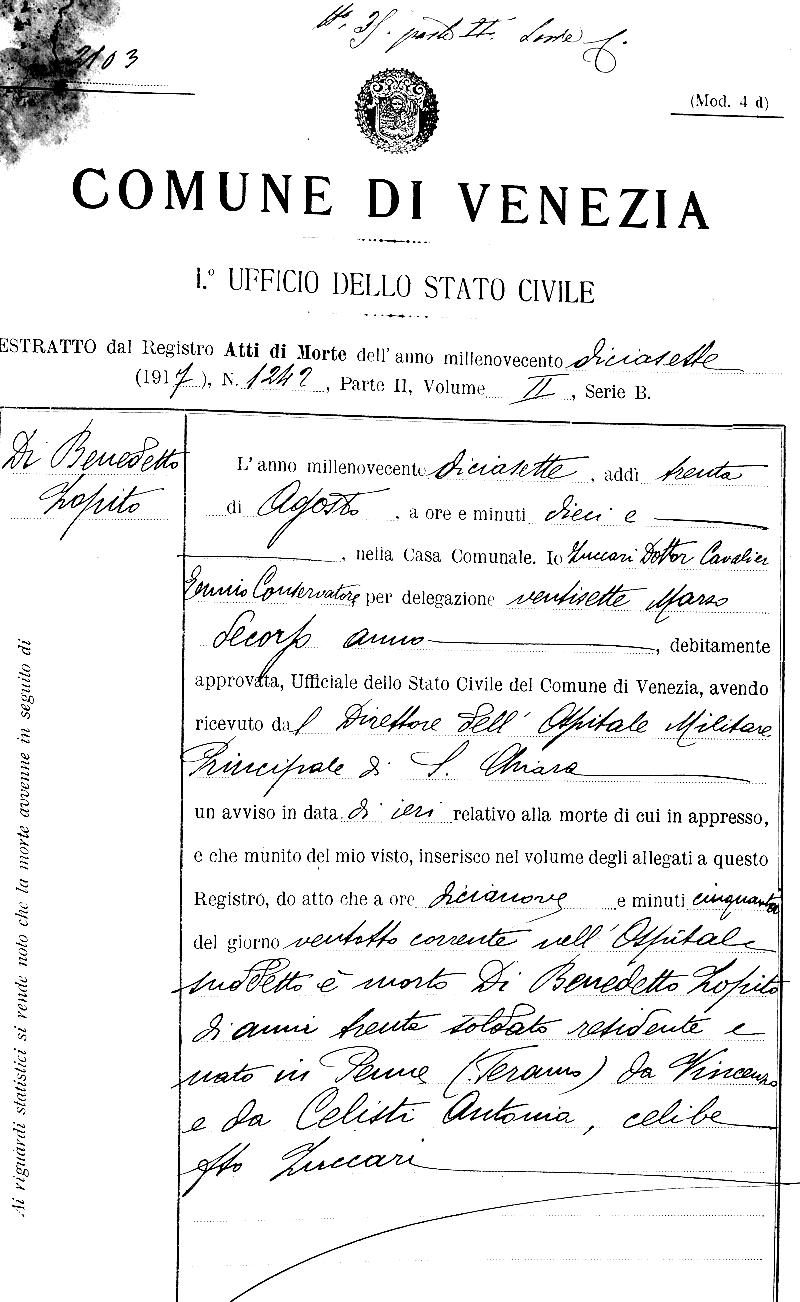 No. 35. parte II. Serie C.
2103
(Mod. 4 d)
COMUNE DI VENEZIA
I.° UFFICIO DELLO STATO CIVILE
ESTRATTO dal Registro Atti di Morte dell' anno millenovecento diciasette
(1917), N. 1242, Parte II, Volume II, Serie B.
Di Benedetto
Zopito
L' anno millenovecento diciasette, addì trenta
di Agosto, a ore e minuti dieci e
, nella Casa Comunale. Io Zuccari Dottor Cavalier
Ennio Conservatore per delegazione ventisette Marzo
decorso anno, debitamente
approvata, Ufficiale dello Stato Civile del Comune di Venezia, avendo
ricevuto dal Direttore dell' Ospitale Militare
Principale di S. Chiara
un avviso in data di ieri relativo alla morte di cui in appresso,
e che munito del mio visto, inserisco nel volume degli allegati a questo
Registro, do atto che a ore dicianove e minuti cinquanta
del giorno ventotto corrente nell' Ospitale
suddetto è morto Di Benedetto Zopito
di anni trenta soldato residente e
nato in Penne (Teramo) da Vincenzo
e da Celisti Antonia, celibe
fto Zuccari
Ai riguardi statistici si rende noto che la morte avvenne in seguito di